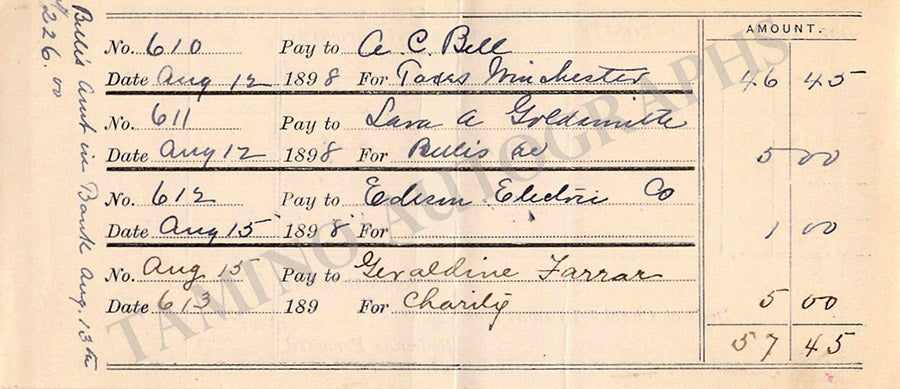 AMOUNT.
No. 610 Pay to A. C. Bell
Date Aug 12 1898 For Taxes Winchester 46 45
No. 611 Pay to A Goldsmith
Date Aug 12 1898 For 5 00
No. 612 Pay to Edison Electric Co
Date Aug 15 1898 For 1 00
No. Aug 15 Pay to Geraldine Farrar
Date 613 189 For Charity 5 00
57 45
Bell's Amt in Bank Aug. 13th
226.00
TAMINO AUTOGRAPHS